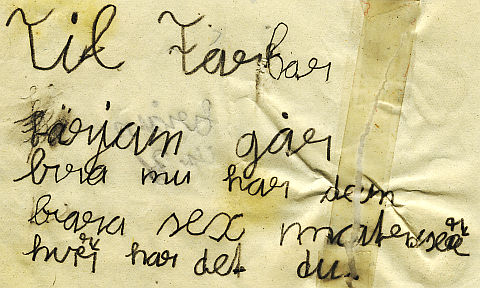 Til Farbar
färjam går
bra mu har dem
bara sex
hur har det du.